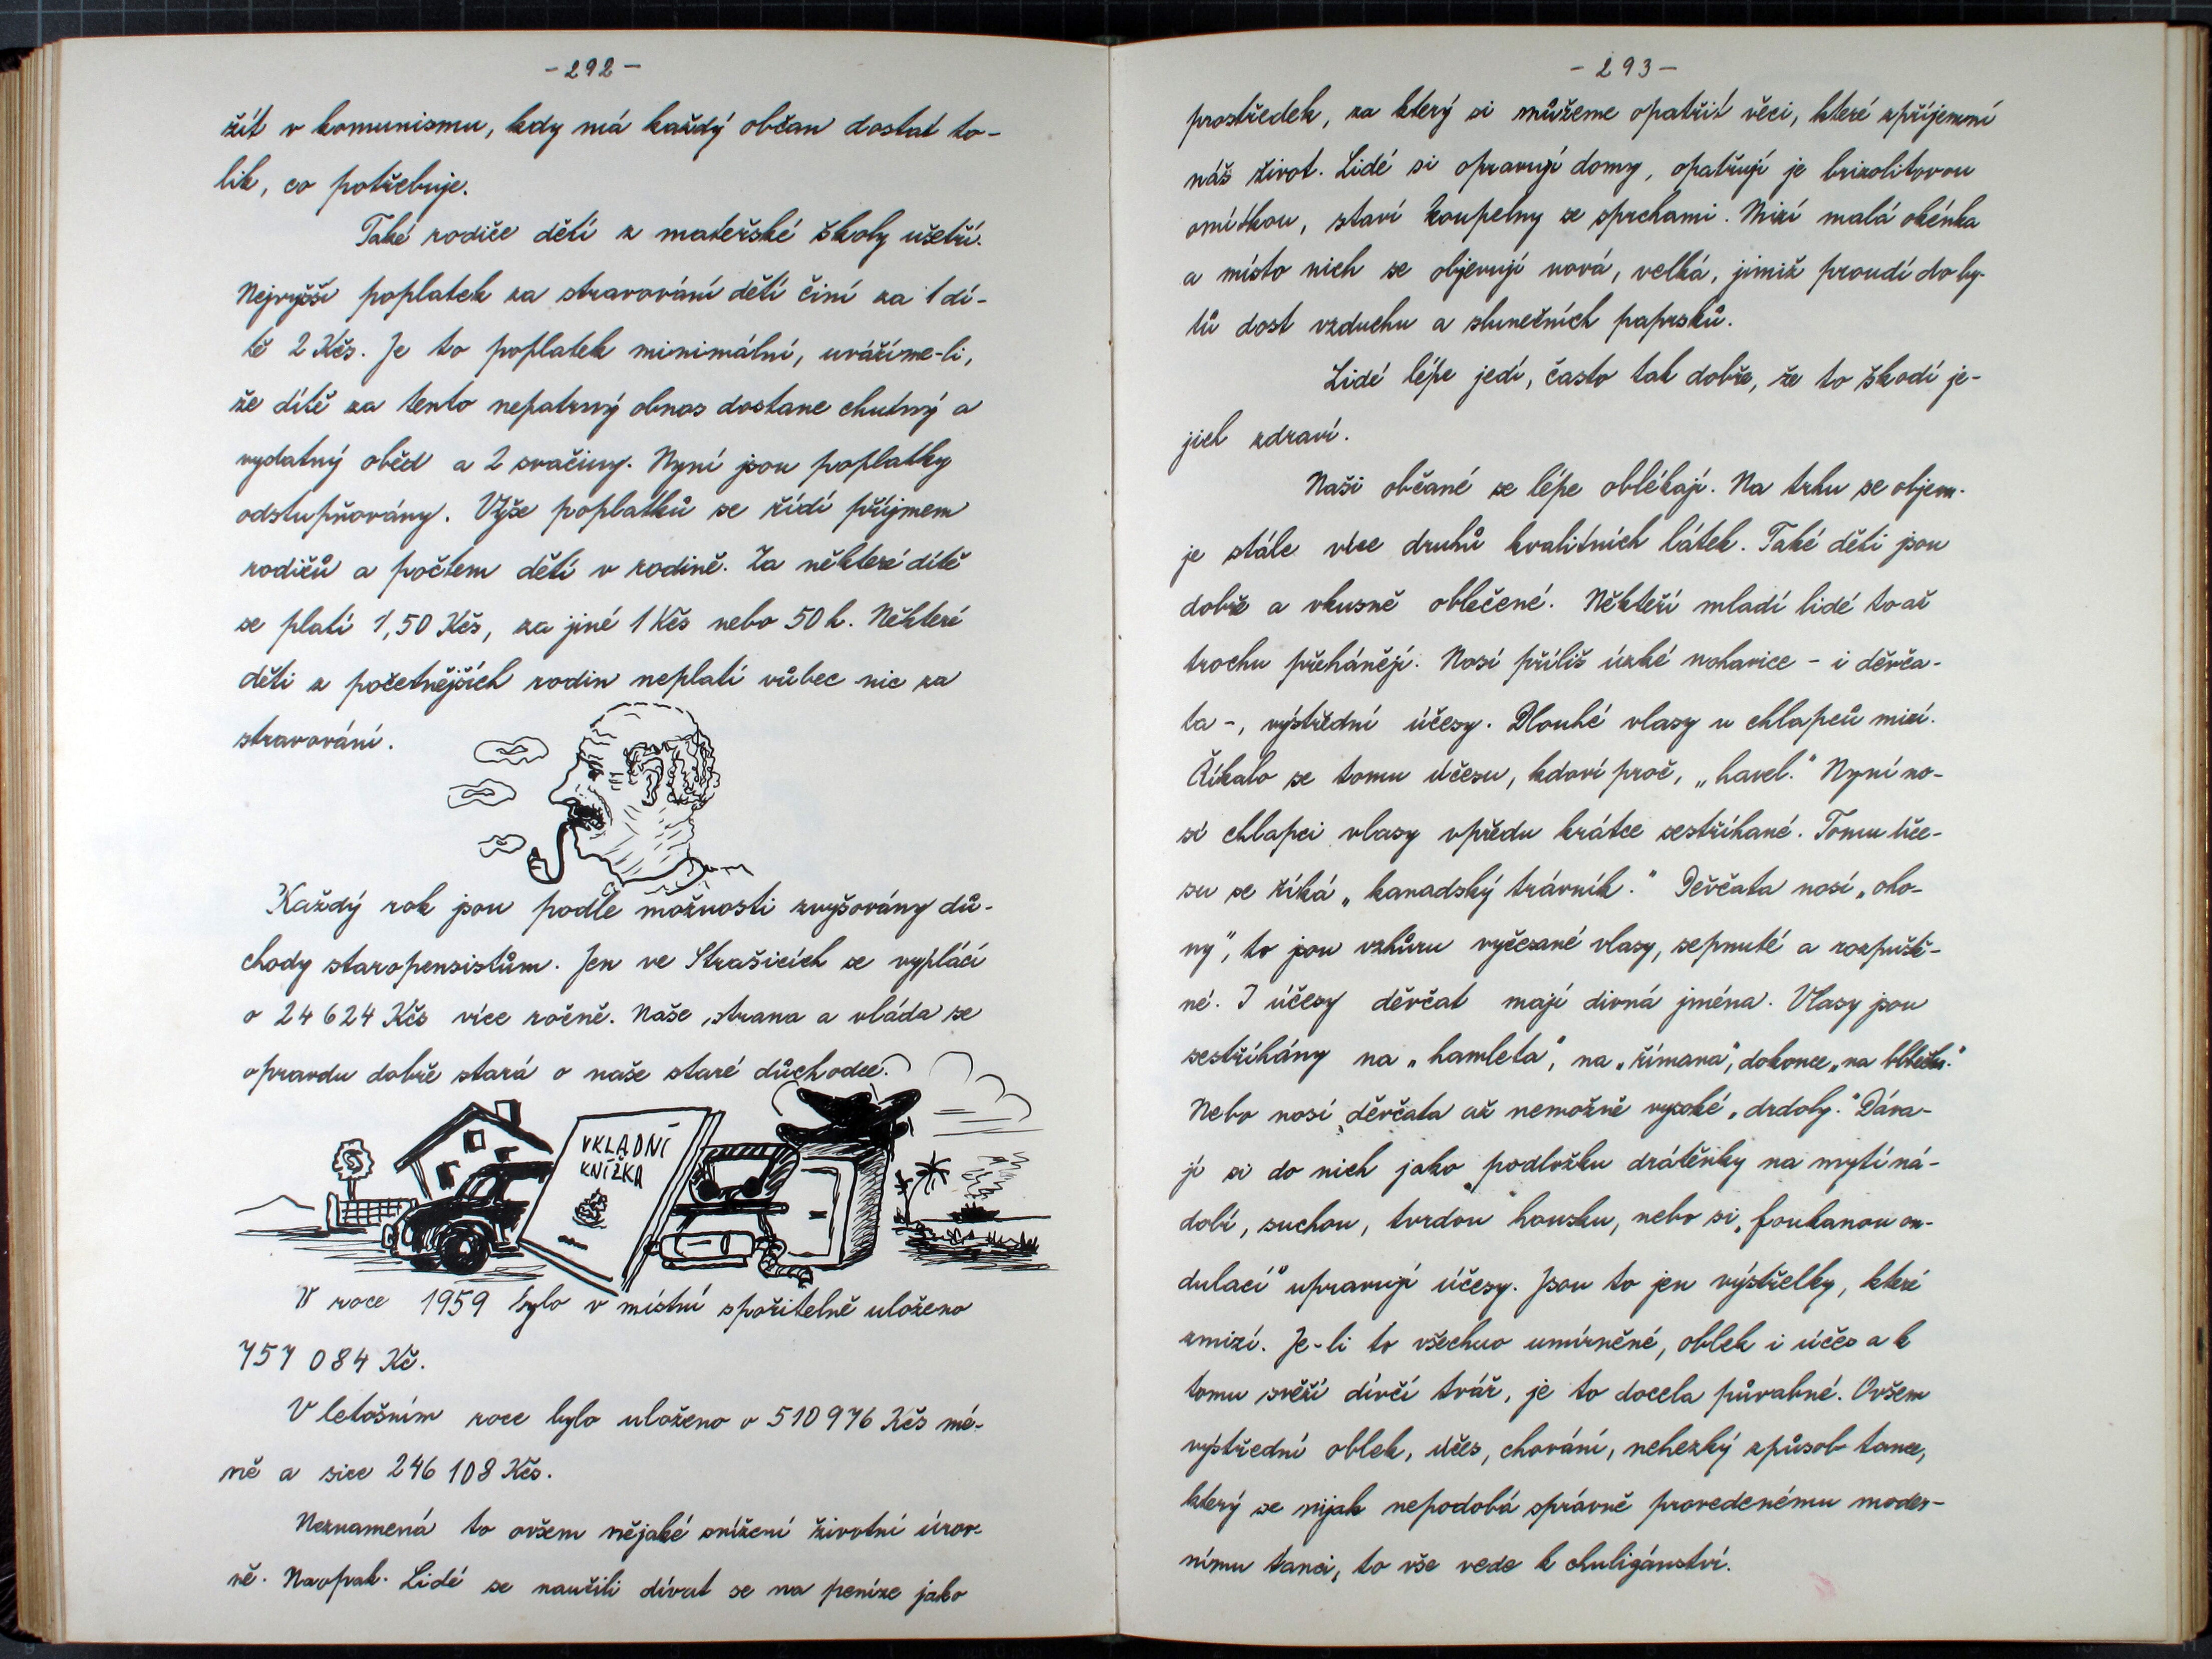 - 292 -
žít v komunismu, kdy má každý občan dostat to-
lik, co potřebuje.
Také rodiče dětí z mateřské školy ušetří.
Nejvyšší poplatek za stravování dětí činí za 1 dí-
tě 2 Kčs. Je to poplatek minimální, uvážíme-li,
že dítě za tento nepatrný obnos dostane chutný a
vydatný oběd a 2 svačiny. Nyní jsou poplatky
odstupňovány. Výše poplatků se řídí příjmem
rodičů a počtem dětí v rodině. Za některé dítě
se platí 1,50 Kčs, za jiné 1 Kčs nebo 50 h. Některé
děti z početnějších rodin neplatí vůbec nic za
stravování.
Každý rok jsou podle možnosti zvyšovány dů-
chody staropensistům. Jen ve Strašicích se vyplácí
o 24 624 Kčs více ročně. Naše strana a vláda se
opravdu dobře stará o naše staré důchodce.
VKLADNÍ
KNÍŽKA
V roce 1959 bylo v místní spořitelně uloženo
757 084 Kč.
V letošním roce bylo uloženo o 510 976 Kčs mé-
ně a sice 246 108 Kčs.
Neznamená to ovšem nějaké snížení životní úrov-
ně. Naopak. Lidé se naučili dívat se na peníze jako
- 293 -
prostředek, za který si můžeme opatřit věci, které zpříjemní
náš život. Lidé si opravují domy, opatřují je brizolitovou
omítkou, staví koupelny se sprchami. Mizí malá okénka
a místo nich se objevují nová, velká, jimiž proudí do by-
tů dost vzduchu a slunečních paprsků.
Lidé lépe jedí, často tak dobře, že to škodí je-
jich zdraví.
Naši občané se lépe oblékají. Na trhu se objevu-
je stále více druhů kvalitních látek. Také děti jsou
dobře a vkusně oblečené. Někteří mladí lidé to až
trochu přehánějí. Nosí příliš úzké nohavice - i děvča-
ta -, výstřední účesy. Dlouhé vlasy u chlapců mizí.
Říkalo se tomu účesu, kdoví proč, „havel." Nyní no-
sí chlapci vlasy vpředu krátce sestříhané. Tomu úče-
su se říká „kanadský trávník." Děvčata nosí „oho-
ny", to jsou vzhůru vyčesané vlasy, sepnuté a rozpuště-
né. I účesy děvčat mají divná jména. Vlasy jsou
sestříhány na „hamleta", na „římana", dokonce „na
Nebo nosí děvčata až nemožně vysoké „drdoly." Dáva-
jí si do nich jako podložku drátěnky na mytí ná-
dobí, suchou, tvrdou housku, nebo si „foukanou on-
dulací" upravují účesy. Jsou to jen výstřelky, které
zmizí. Je-li to všechno umírněné, oblek i účes a k
tomu svěží dívčí tvář, je to docela půvabné. Ovšem
výstřední oblek, účes, chování, nehezký způsob tance,
který se nijak nepodobá správně provedenému moder-
nímu tanci, to vše vede k chuligánství.